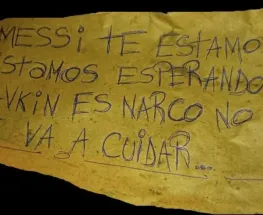 MESSI TE ESTAMO
STAMOS ESPERANDO
VKIN ES NARCO NO
VA A CUIDAR...